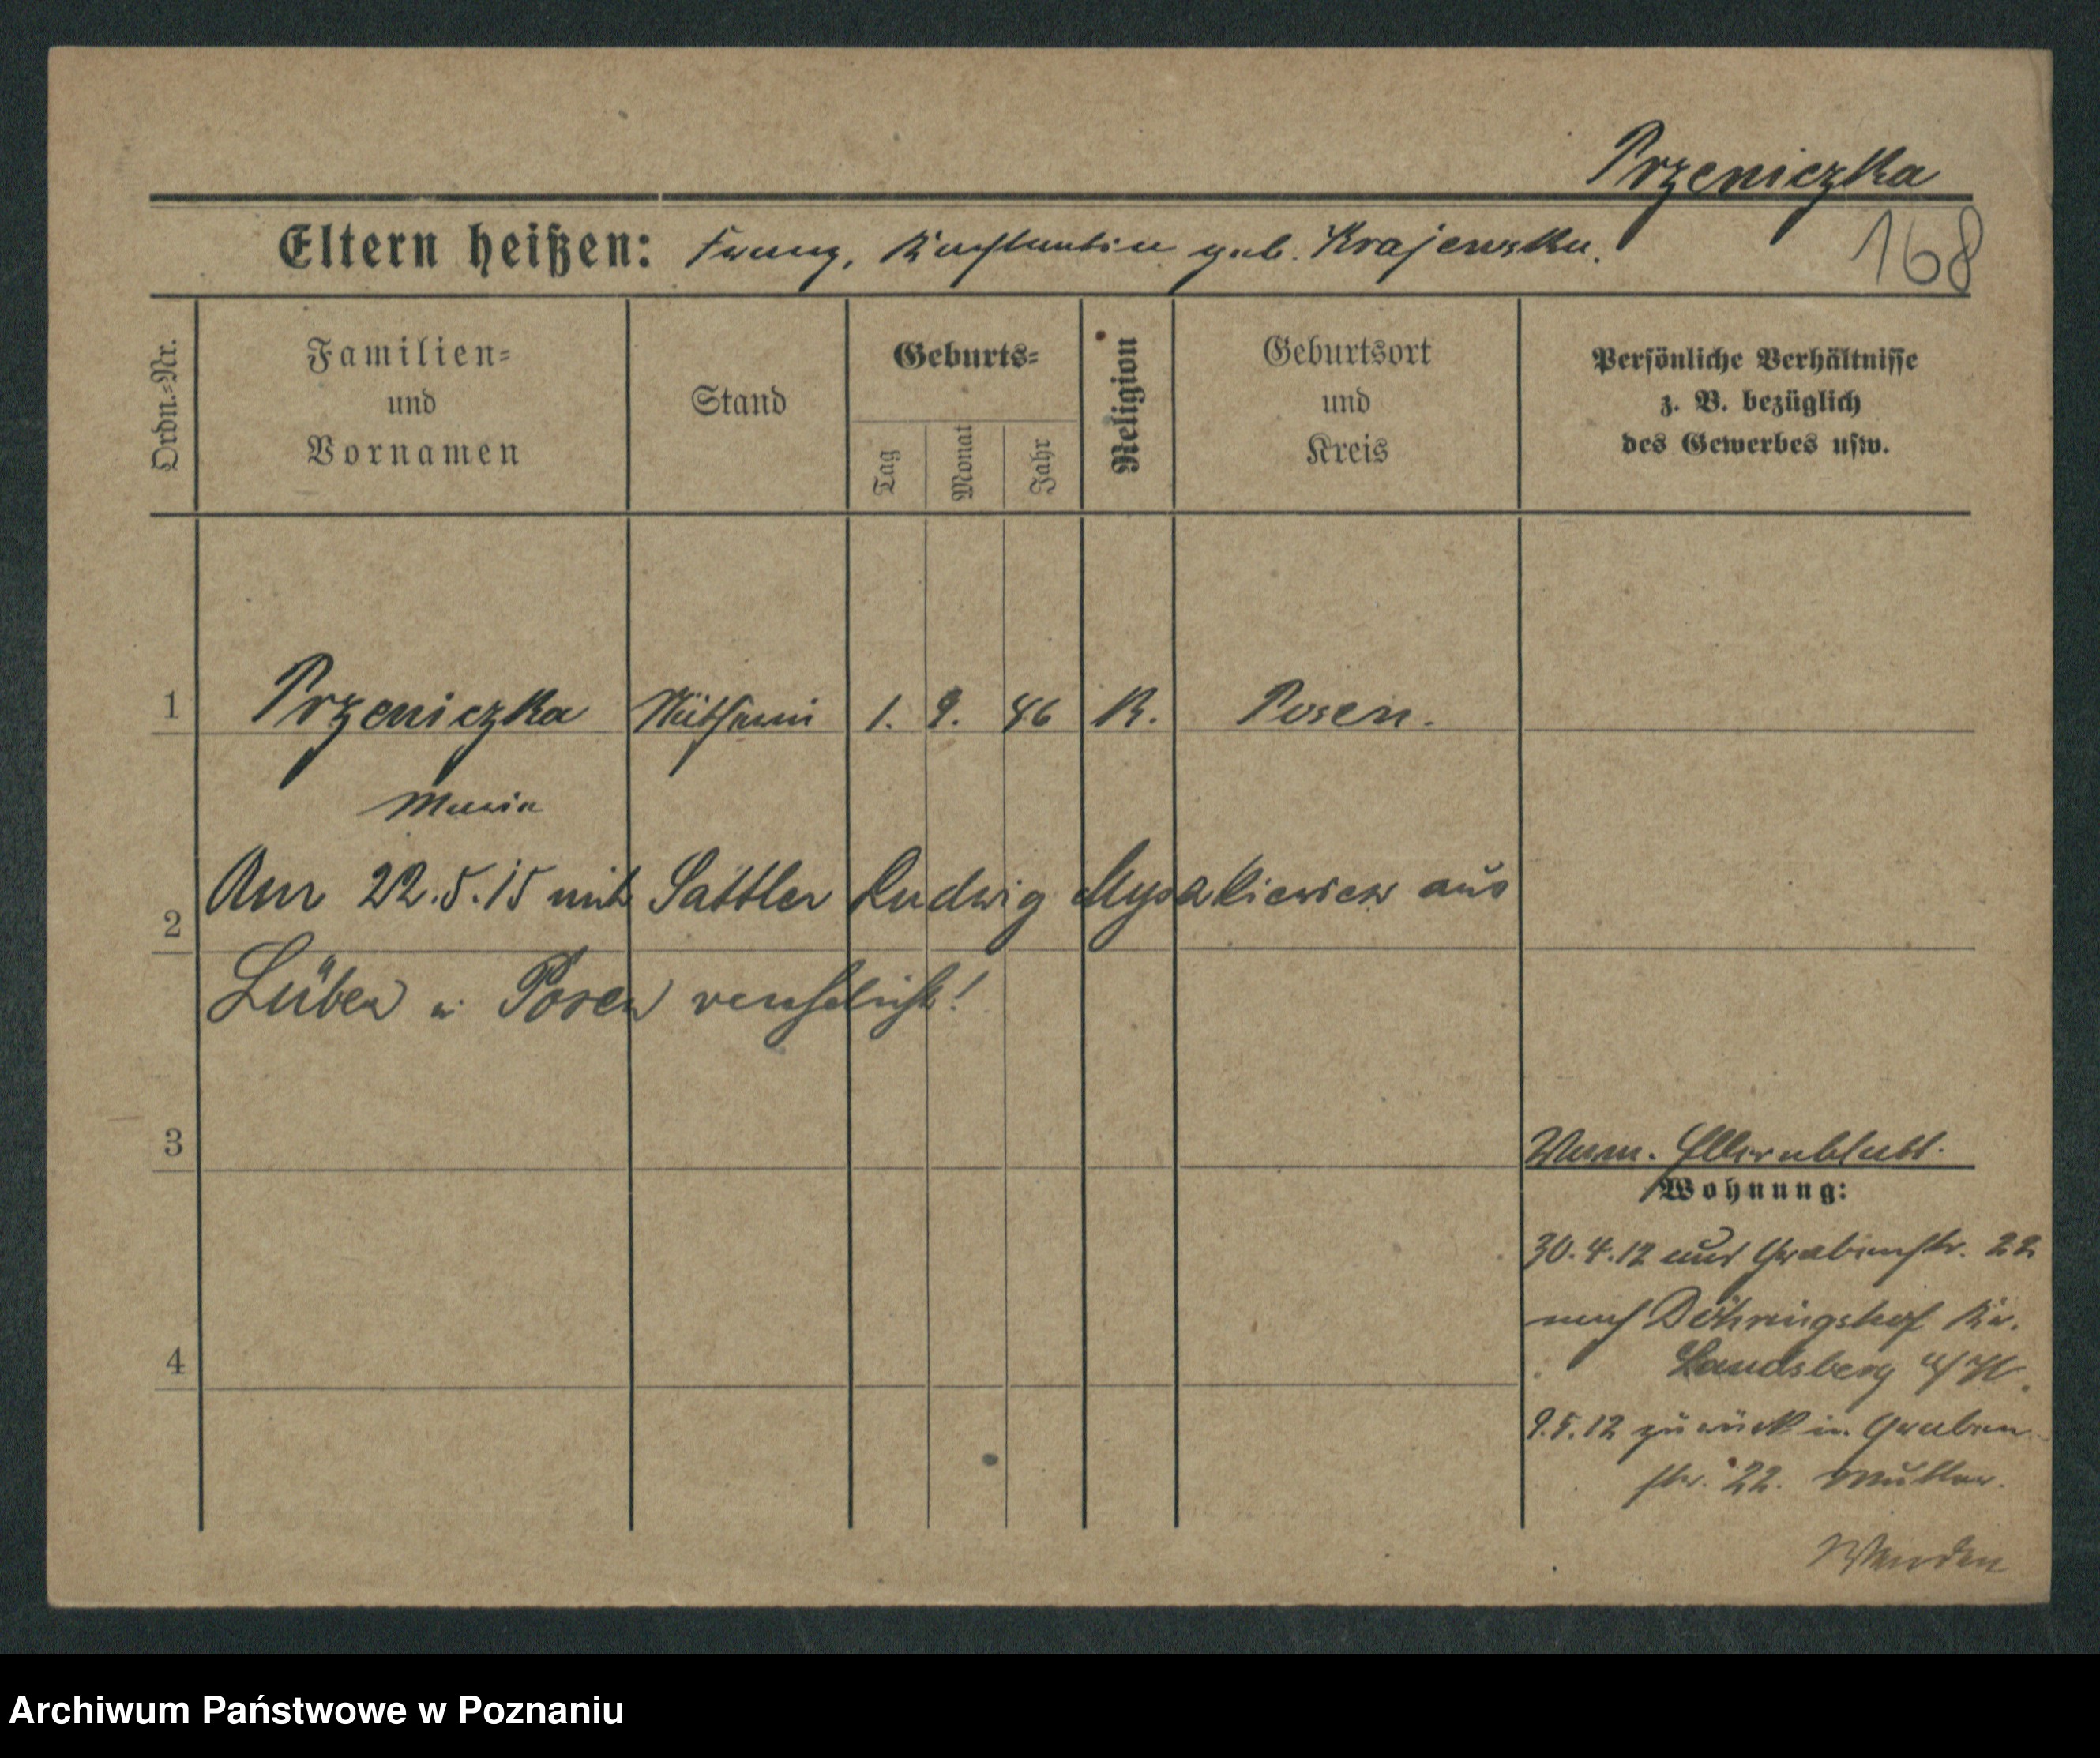 Przeniczka
168
Eltern heißen: Franz, Konstantia geb. Krajewska.
Ordn.-Nr.
Familien-
und
Vornamen
Stand
Geburts-
Tag
Monat
Jahr
Religion
Geburtsort
und
Kreis
Persönliche Verhältnisse
z. B. bezüglich
des Gewerbes usw.
1 Przeniczka 1. 9. K. Posen.
Maria
2 Am 22.5.15 mit Sattler Ludwig aus
Lüben in Posen verehelicht!
3
4
Wohnung:
30.4.12 aus Grabenstr. 22
nach Döhringshof Kr.
Landsberg a/W.
9.5.12 zurück in Graben
str. 22. Mutter.
Wenden
Archiwum Państwowe w Poznaniu